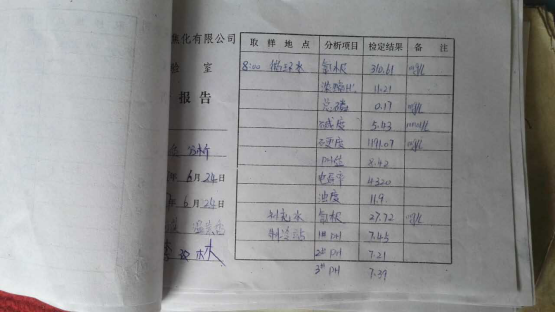 焦化有限公司
验 室
报 告
分析
6月24日
6月24日
取 样 地 点 分析项目 检定结果 备 注
8:00 循环水 氯根 310.61 mg/L
浓缩比 11.21
总磷 0.17 mg/L
总碱度 5.43 mmol/L
总硬度 1191.07 mg/L
PH值 8.42
电导率 4320
浊度 11.9
制冷水 氯根 27.72 mg/L
制冷站 1# PH 7.45
2# PH 7.21
3# PH 7.39